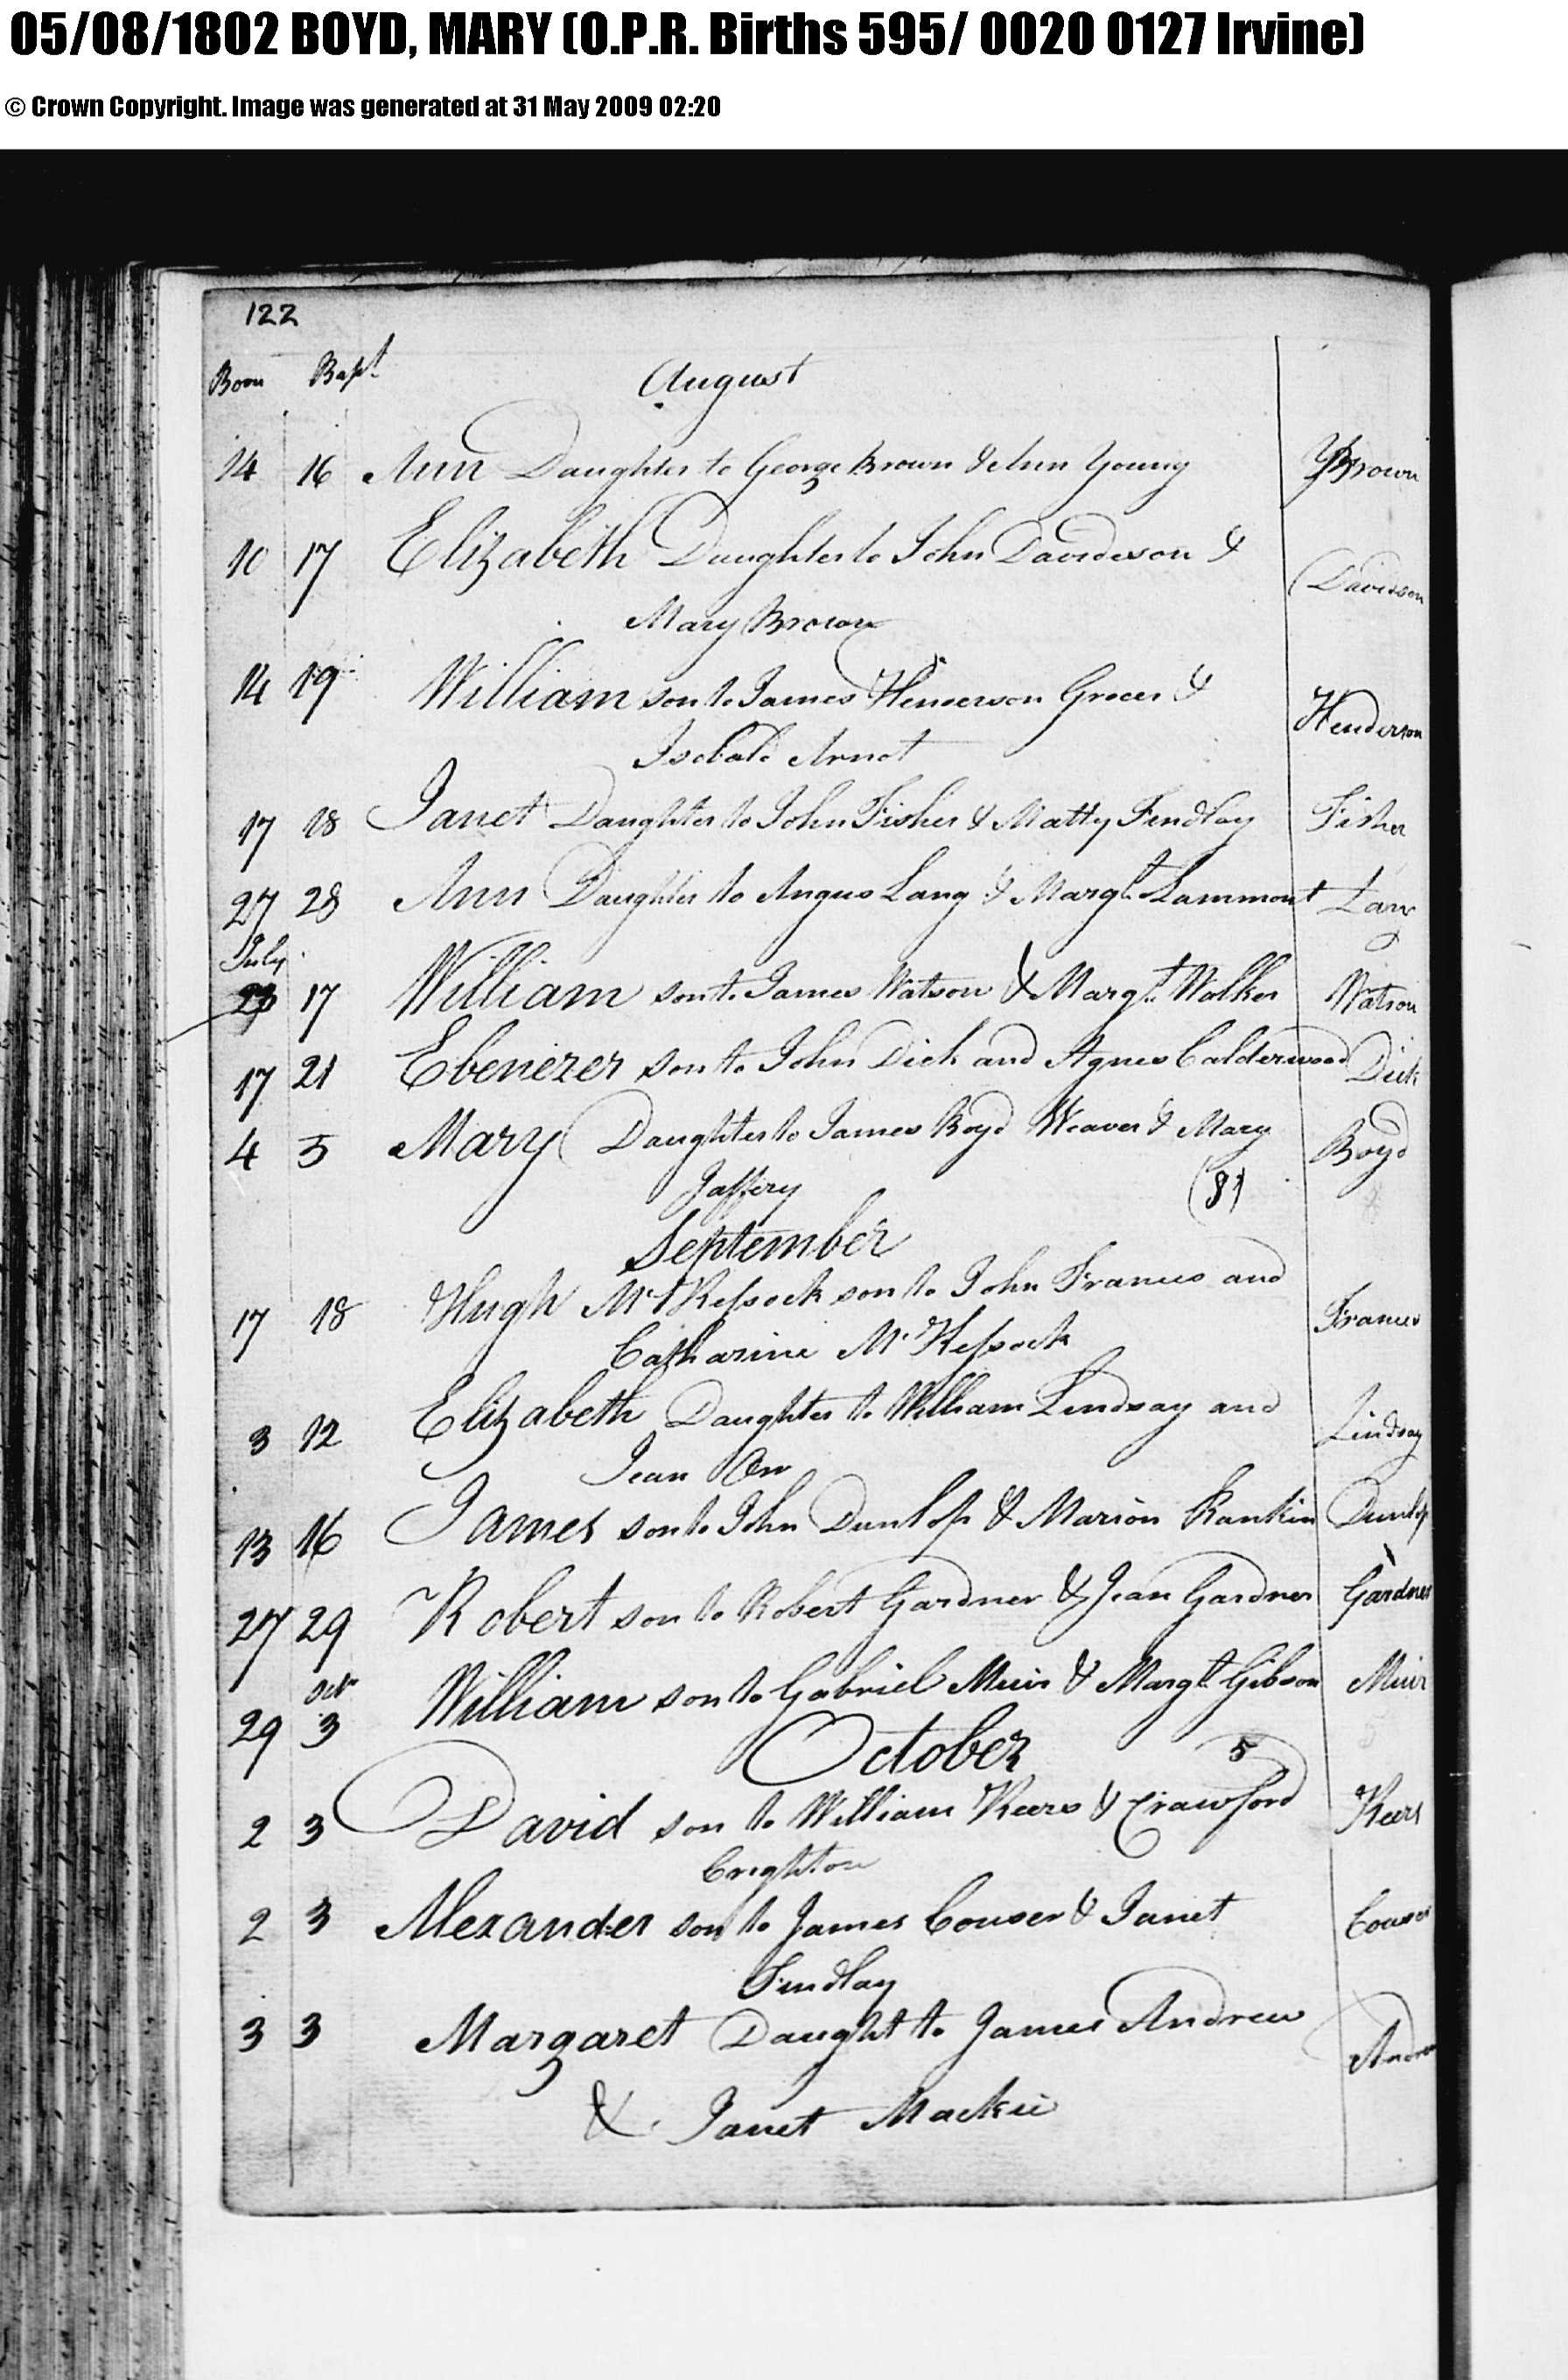 05/08/1802 BOYD, MARY (O.P.R. Births 595/ 0020 0127 Irvine)
© Crown Copyright. Image was generated at 31 May 2009 02:20
122
Born Bapt August
14 16 Ann Daughter to George Brown & Ann Young Brown
10 17 Elizabeth Daughter to John Davidson & Davidson
Mary Brown
14 19 William son to James Henderson Grocer & Henderson
Isobale Arnot
17 18 Janet Daughter to John Fisher & Matty Findlay Fisher
27 28 Ann Daughter to Angus Lang & Margt. Lammont Lang
July
17 William son to James Watson & Margt. Walker Watson
17 21 Ebenezer son to John Dick and Agnes Calderwood Dick
4 5 Mary Daughter to James Boyd Weaver & Mary Boyd
Jaffery (8)
September
17 18 Hugh Mc Kessock son to John Francis and Francis
Catharine Mc Kessock
3 12 Elizabeth Daughter to William Lindsay and Lindsay
Jean Orr
13 16 James son to John Dunlop & Marion Rankin Dunlop
27 29 Robert son to Robert Gardner & Jean Gardner Gardner
Octr
29 3 William son to Gabriel Muir & Margt Gibson Muir
October 5
2 3 David son to William Keers & Crawford Keers
Crighton
2 3 Alexander son to James Couser & Janet Couser
Findlay
3 3 Margaret Daught to James Andrew Andrew
& Janet Mackie